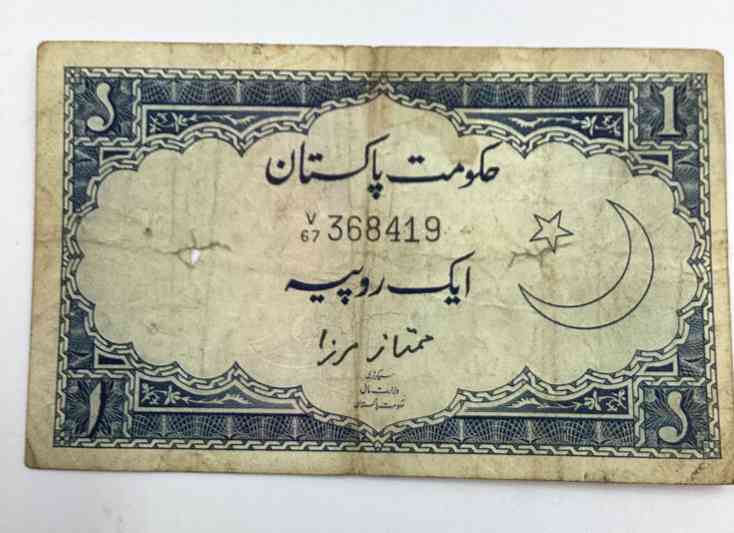 ১ 1
حکومت پاکستان
V/67 368419
ایک روپیہ
ممتاز مرزا
سیکرٹری
وزارت مال
حکومت پاکستان
۱ ১